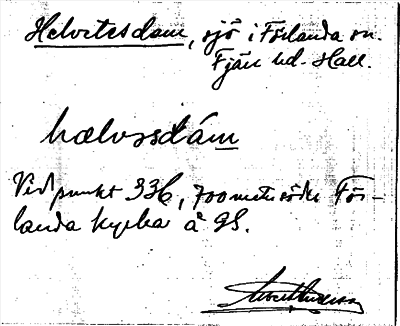 Helvetesdam, sjö i Förlanda sn.
Fjäre hd. Hall.
hælvssdám
Vid punkt 336, 700 meter söder För-
landa kyrka å GS.